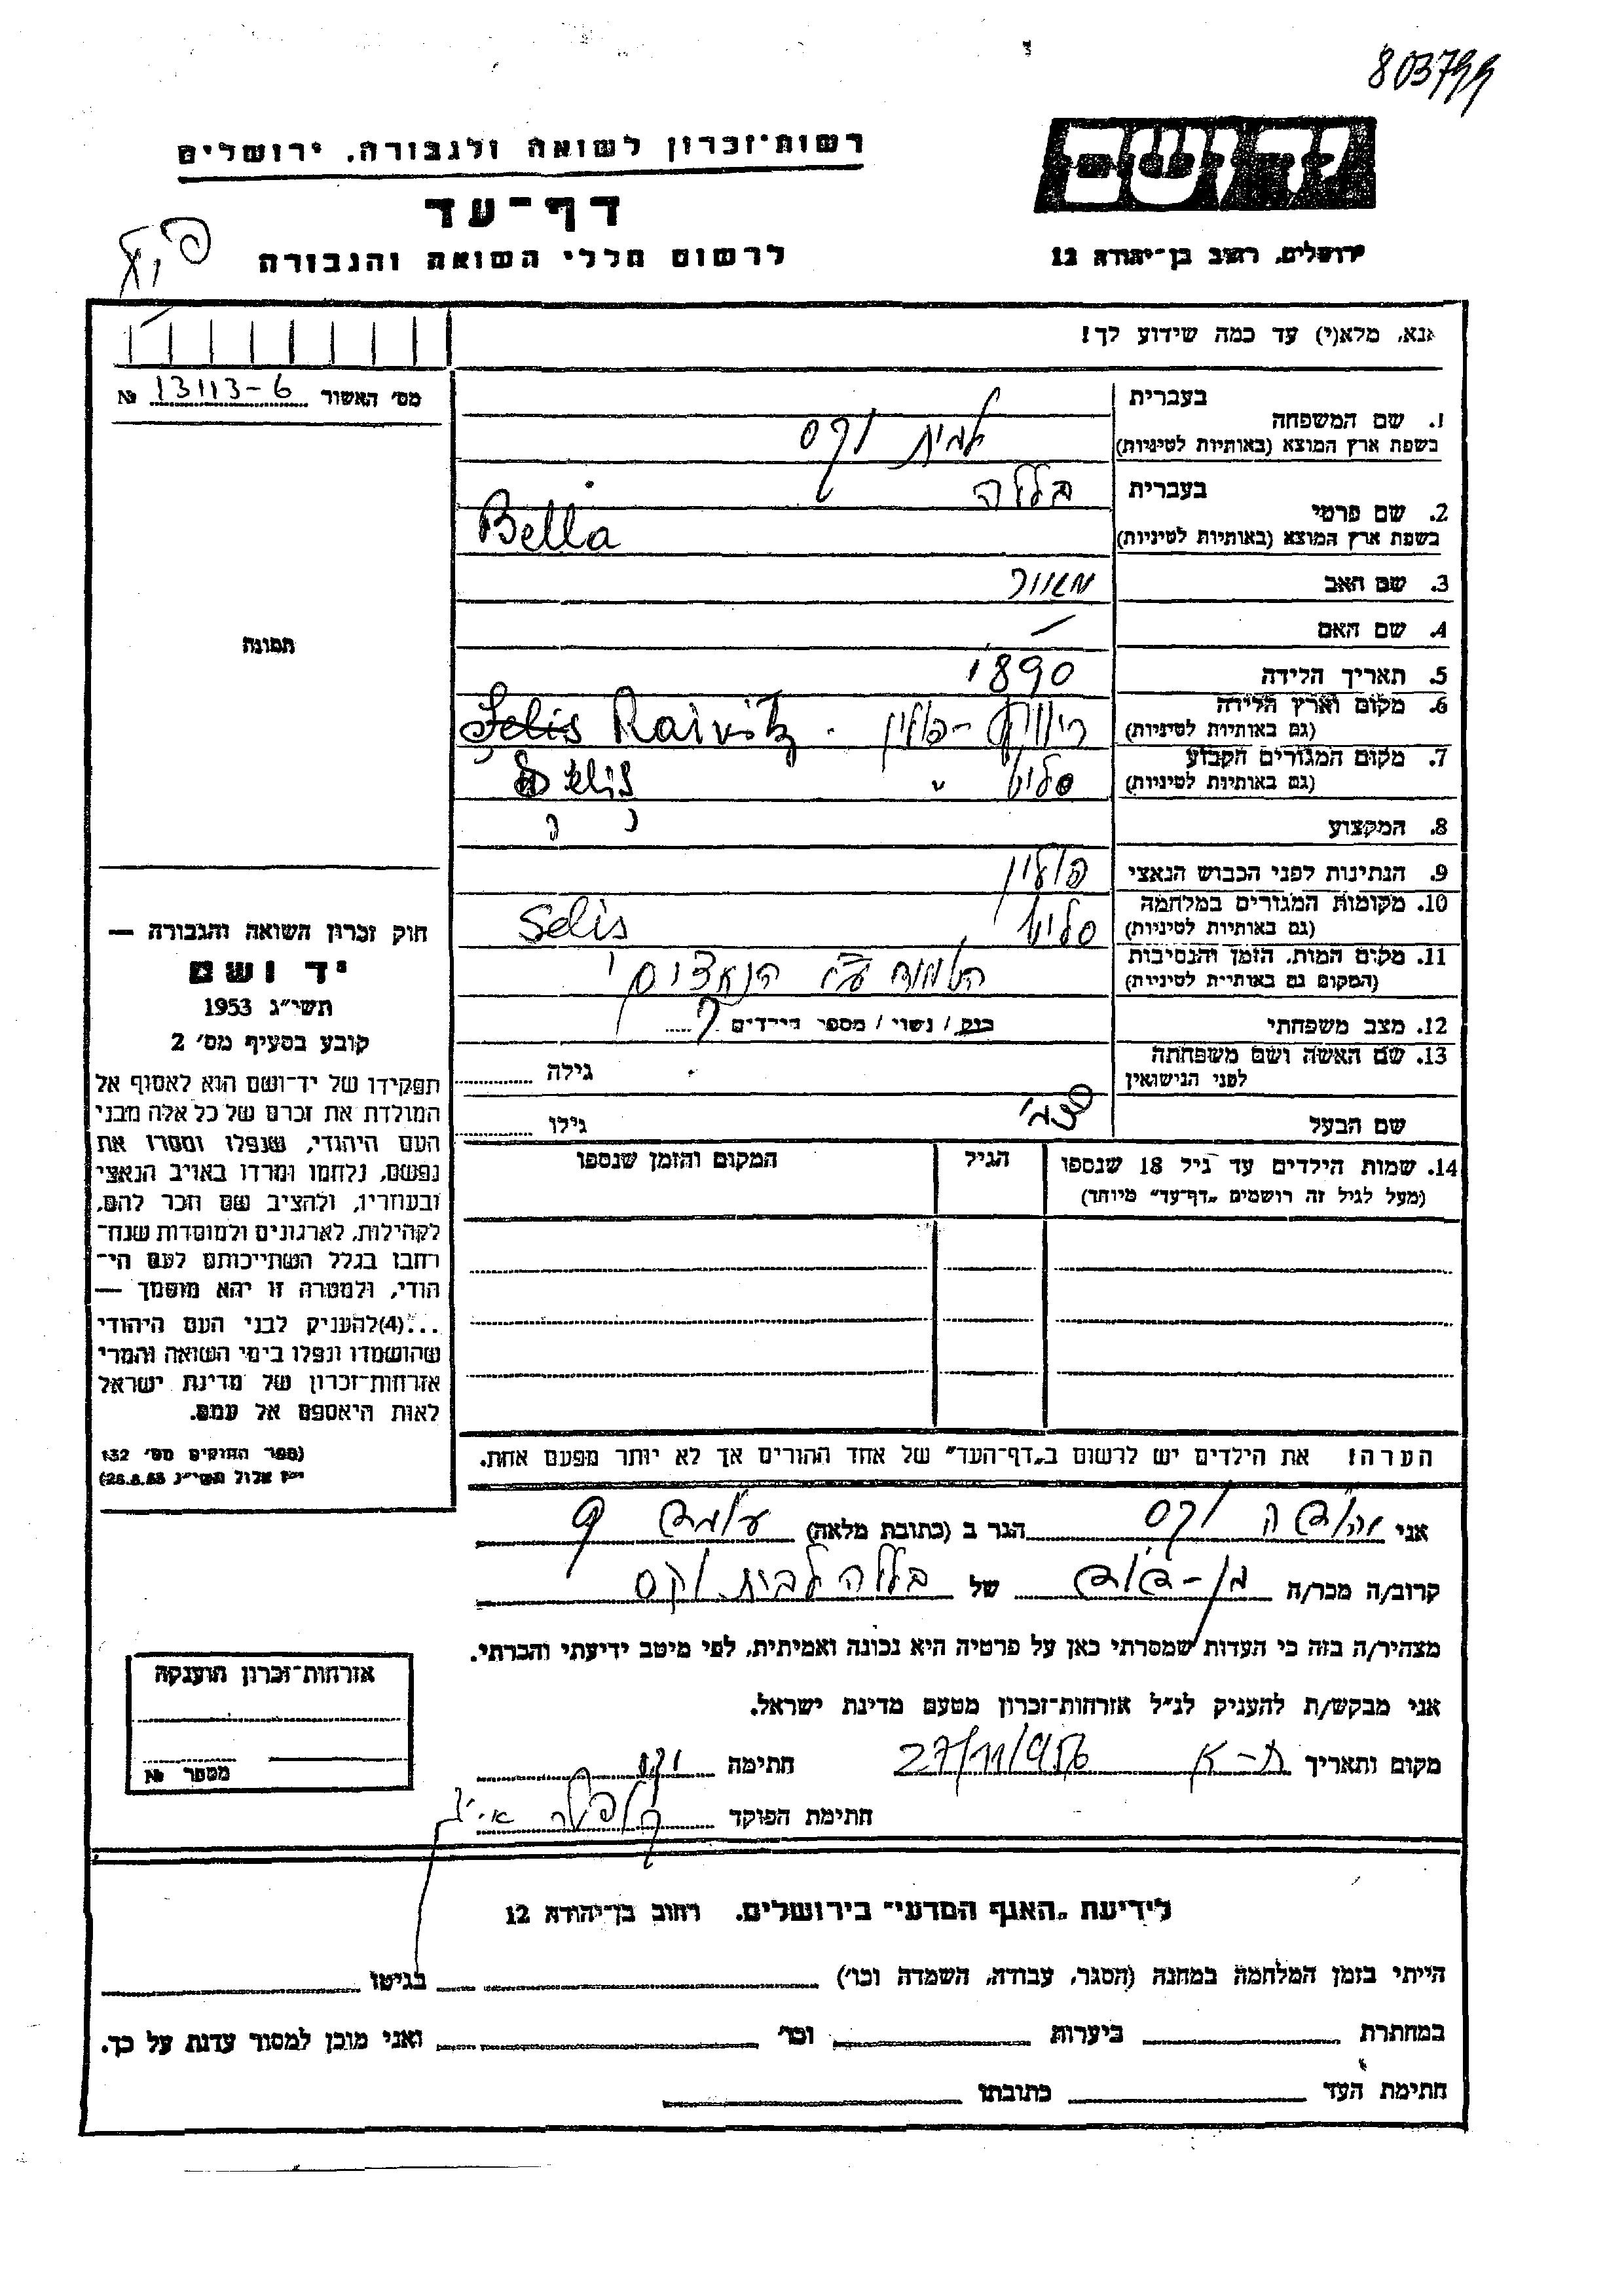 803799
יד ושם
ירושלים, רחוב בן־יהודה 12
רשות־זכרון לשואה ולגבורה, ירושלים
דף־עד
לרשום חללי השואה והגבורה
אנא, מלא(י) עד כמה שידוע לך!
מס׳ האשור 13113-6 №
תמונה
חוק זכרון השואה והגבורה —
יד ושם
תשי״ג 1953
קובע בסעיף מס׳ 2
תפקידו של יד־ושם הוא לאסוף אל
המולדת את זכרם של כל אלה מבני
העם היהודי, שנפלו ומסרו את
נפשם, נלחמו ומרדו באויב הנאצי
ובעוזריו, ולהציב שם וזכר להם,
לקהילות, לארגונים ולמוסדות שנח־
רחבו בגלל השתייכותם לעם הי־
הודי, ולמטרה זו יהא מוסמך —
...(4)להעניק לבני העם היהודי
שהושמדו ונפלו בימי השואה והמרי
אזרחות־זכרון של מדינת ישראל
לאות היאספם אל עמם.
(ספר החוקים מס׳ 132
י״ז אלול תשי״ג 28.8.53)
1. שם המשפחה בעברית
בשפת ארץ המוצא (באותיות לטיניות) לבית וקס
2. שם פרטי בעברית בלה
בשפת ארץ המוצא (באותיות לטיניות) Bella
3. שם האב
4. שם האם —
5. תאריך הלידה 1890
6. מקום וארץ הלידה
(גם באותיות לטיניות) פולין Selis Raivitz
7. מקום המגורים הקבוע
(גם באותיות לטיניות) סליש " Selis
8. המקצוע ? ?
9. הנתינות לפני הכבוש הנאצי פולין
10. מקומות המגורים במלחמה
(גם באותיות לטיניות) סליש Selis
11. מקום המות, הזמן והנסיבות
(המקום גם באותיות לטיניות) הושמדה ע״י הנאצים
12. מצב משפחתי רווק / נשוי / מספר הילדים ?
13. שם האשה ושם משפחתה
לפני הנישואין גילה
שם הבעל גילו
14. שמות הילדים עד גיל 18 שנספו הגיל המקום והזמן שנספו
(מעל לגיל זה רושמים „דף־עד״ מיוחד)
הערה: את הילדים יש לרשום ב„דף־העד״ של אחד ההורים אך לא יותר מפעם אחת.
אני יהודה וקס הגר ב (כתובת מלאה)
קרוב/ה מכר/ה בן-דוד של בלה לבית וקס
מצהיר/ה בזה כי העדות שמסרתי כאן על פרטיה היא נכונה ואמיתית, לפי מיטב ידיעתי והכרתי.
אני מבקש/ת להעניק לנ״ל אזרחות־זכרון מטעם מדינת ישראל.
מקום ותאריך ת-א 27/11/956 חתימה וקס
חתימת הפוקד
אזרחות־זכרון הוענקה
מספר №
לידיעת „האגף המדעי״ בירושלים, רחוב בן־יהודה 12
הייתי בזמן המלחמה במחנה (הסגר, עבודה, השמדה וכו׳) בגיטו
במחתרת ביערות וכו׳ ואני מוכן למסור עדות על כך.
חתימת העד כתובתו